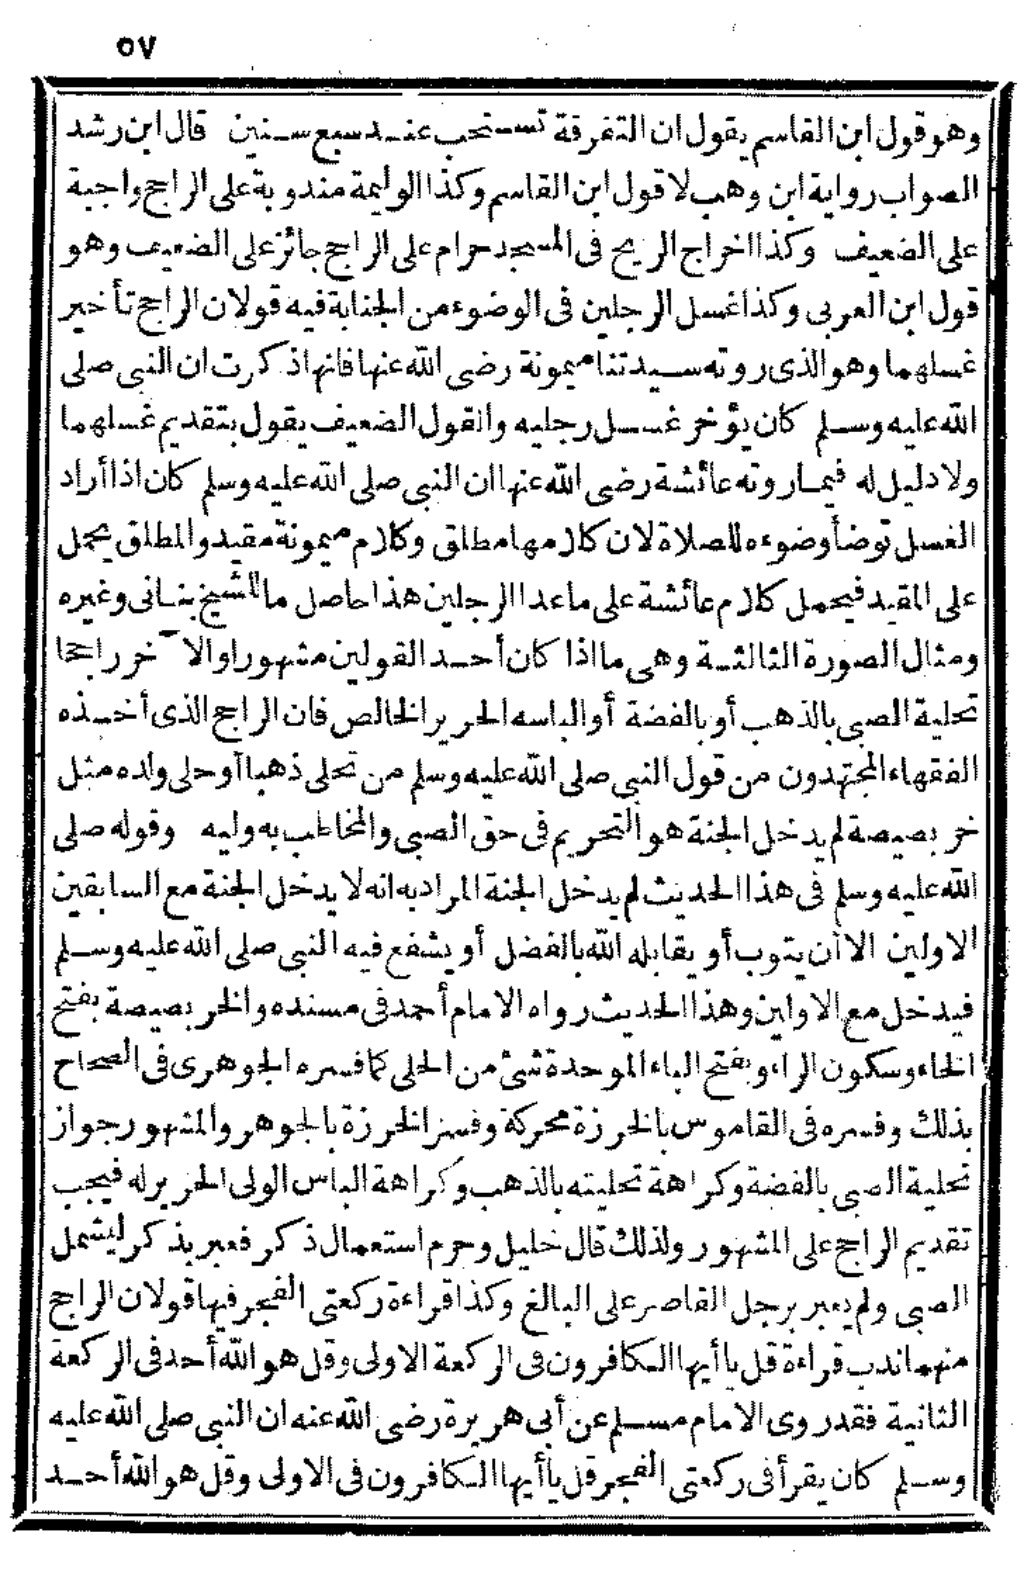 ٥٧
وهو قول ابن القاسم يقول ان التفرقة تستحب عند سبع سنين قال ابن رشد
الصواب رواية ابن وهب لا قول ابن القاسم وكذا الوليمة مندوبة على الراجح واجبة
على الضعيف وكذا اخراج الريح فى المسجد حرام على الراجح جائز على الضعيف وهو
قول ابن العربى وكذا غسل الرجلين فى الوضوء من الجنابة فيه قولان الراجح تأخير
غسلهما وهو الذى روته سيدتنا ميمونة رضى الله عنها فانها ذكرت ان النبى صلى
الله عليه وسلم كان يؤخر غسل رجليه والقول الضعيف يقول بتقديم غسلهما
ولا دليل له فيما روته عائشة رضى الله عنها ان النبى صلى الله عليه وسلم كان اذا أراد
الغسل توضأ وضوءه للصلاة لان كلامها مطلق وكلام ميمونة مقيد والمطلق يحمل
على المقيد فيحمل كلام عائشة على ماعدا الرجلين هذا حاصل ما للشيخ بنانى وغيره
ومثال الصورة الثالثة وهى ما اذا كان أحد القولين مشهورا والآخر راجحا
تحلية الصبى بالذهب أو بالفضة أو الباسه الحرير الخالص فان الراجح الذى أخذه
الفقهاء المجتهدون من قول النبى صلى الله عليه وسلم من تحلى ذهبا أو حلى ولده مثل
خربصيصة لم يدخل الجنة هو التحريم فى حق الصبى والمخاطب به وليه وقوله صلى
الله عليه وسلم فى هذا الحديث لم يدخل الجنة المراد به انه لا يدخل الجنة مع السابقين
الاولين الا أن يتوب أو يقابله الله بالفضل أو يشفع فيه النبى صلى الله عليه وسلم
فيدخل مع الاولين وهذا الحديث رواه الامام أحمد فى مسنده والخربصيصة بفتح
الخاء وسكون الراء وبفتح الباء الموحدة شئ من الحلى كما فسره الجوهرى فى الصحاح
بذلك وفسره فى القاموس بالخرزة محركة وفسر الخرزة بالجوهر والمشهور جواز
تحلية الصبى بالفضة وكراهة تحليته بالذهب وكراهة الباس الولى الحرير له فيجب
تقديم الراجح على المشهور ولذلك قال خليل وحرم استعمال ذكر فعبر بذكر ليشمل
الصبى ولم يعبر برجل القاصر على البالغ وكذا قراءة ركعتى الفجر فيها قولان الراجح
منهما ندب قراءة قل يا أيها الكافرون فى الركعة الاولى وقل هو الله أحد فى الركعة
الثانية فقد روى الامام مسلم عن أبى هريرة رضى الله عنه ان النبى صلى الله عليه
وسلم كان يقرأ فى ركعتى الفجر قل يا أيها الكافرون فى الاولى وقل هو الله أحد